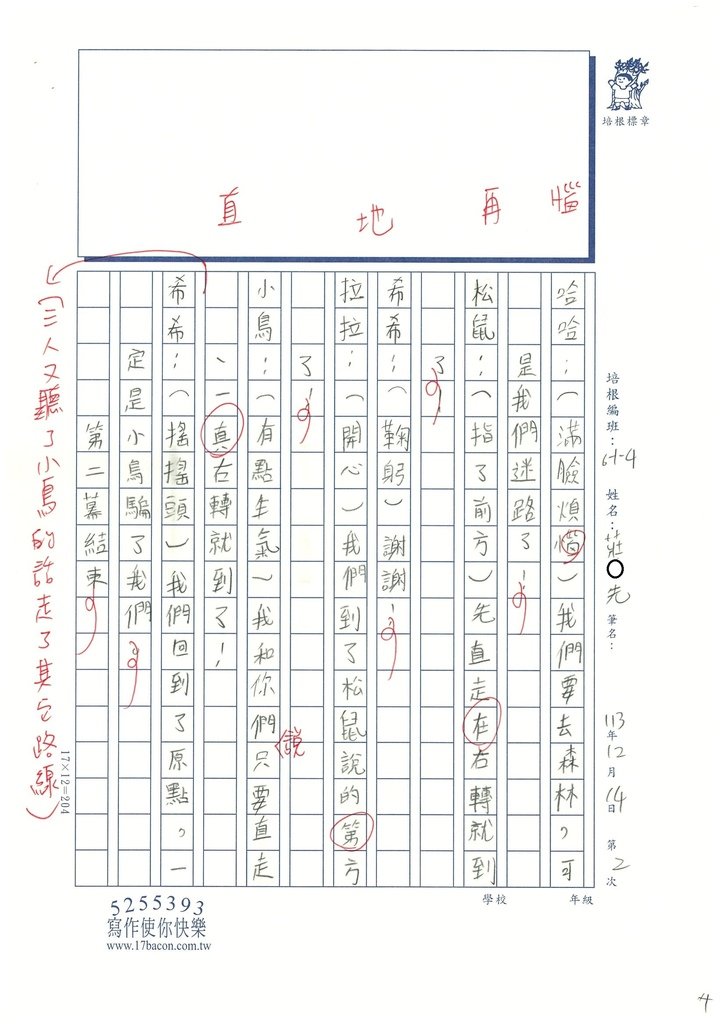 惱
再
地
直
培根標章
培根編班：61-4 姓名：莊 先 筆名： 113年12月14日 第2次
哈哈：（滿臉煩惱）我們要去森林，可
是我們迷路了！
松鼠：（指了前方）先直走在右轉就到
了！
希希：（鞠躬）謝謝！
拉拉：（開心）我們到了松鼠說的第方
了！
小鳥：（有點生氣）我和你們只要直走
說
、一真右轉就到了！
希希：（搖搖頭）我們回到了原點，一
定是小鳥騙了我們
第二幕結束
（三人又聽了小鳥的話走了其它路線）
17×12=204
學校 年級
5255393
寫作使你快樂
www.17bacon.com.tw
4